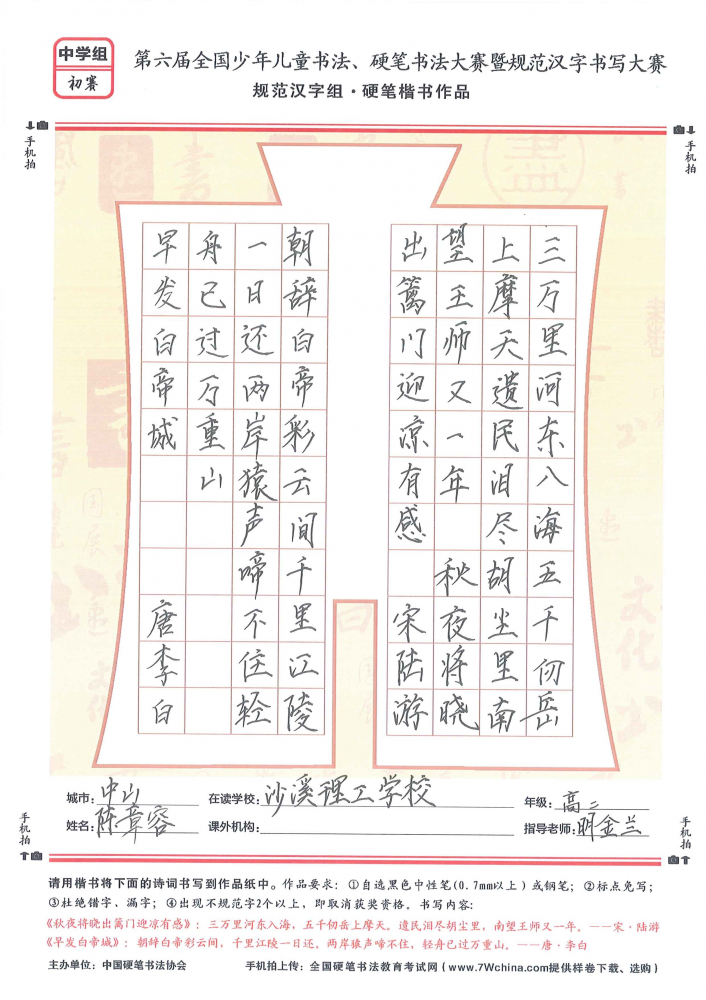 中学组
初赛
第六届全国少年儿童书法、硬笔书法大赛暨规范汉字书写大赛
规范汉字组·硬笔楷书作品
手机拍
手机拍
三万里河东八海五千仞岳
上摩天遗民泪尽胡尘里南
望王师又一年 秋夜将晓
出篱门迎凉有感 宋陆游
朝辞白帝彩云间千里江陵
一日还两岸猿声啼不住轻
舟已过万重山
早发白帝城 唐李白
城市：中山 在读学校：沙溪理工学校 年级：高二
姓名：陈章容 课外机构： 指导老师：明金兰
手机拍
手机拍
请用楷书将下面的诗词书写到作品纸中。作品要求：①自选黑色中性笔(0.7mm以上)或钢笔；②标点免写；
③杜绝错字、漏字；④出现不规范字2个以上，即取消获奖资格。书写内容：
《秋夜将晓出篱门迎凉有感》：三万里河东入海，五千仞岳上摩天。遗民泪尽胡尘里，南望王师又一年。——宋·陆游
《早发白帝城》：朝辞白帝彩云间，千里江陵一日还。两岸猿声啼不住，轻舟已过万重山。——唐·李白
主办单位：中国硬笔书法协会 手机拍上传：全国硬笔书法教育考试网(www.7Wchina.com提供样卷下载、选购)